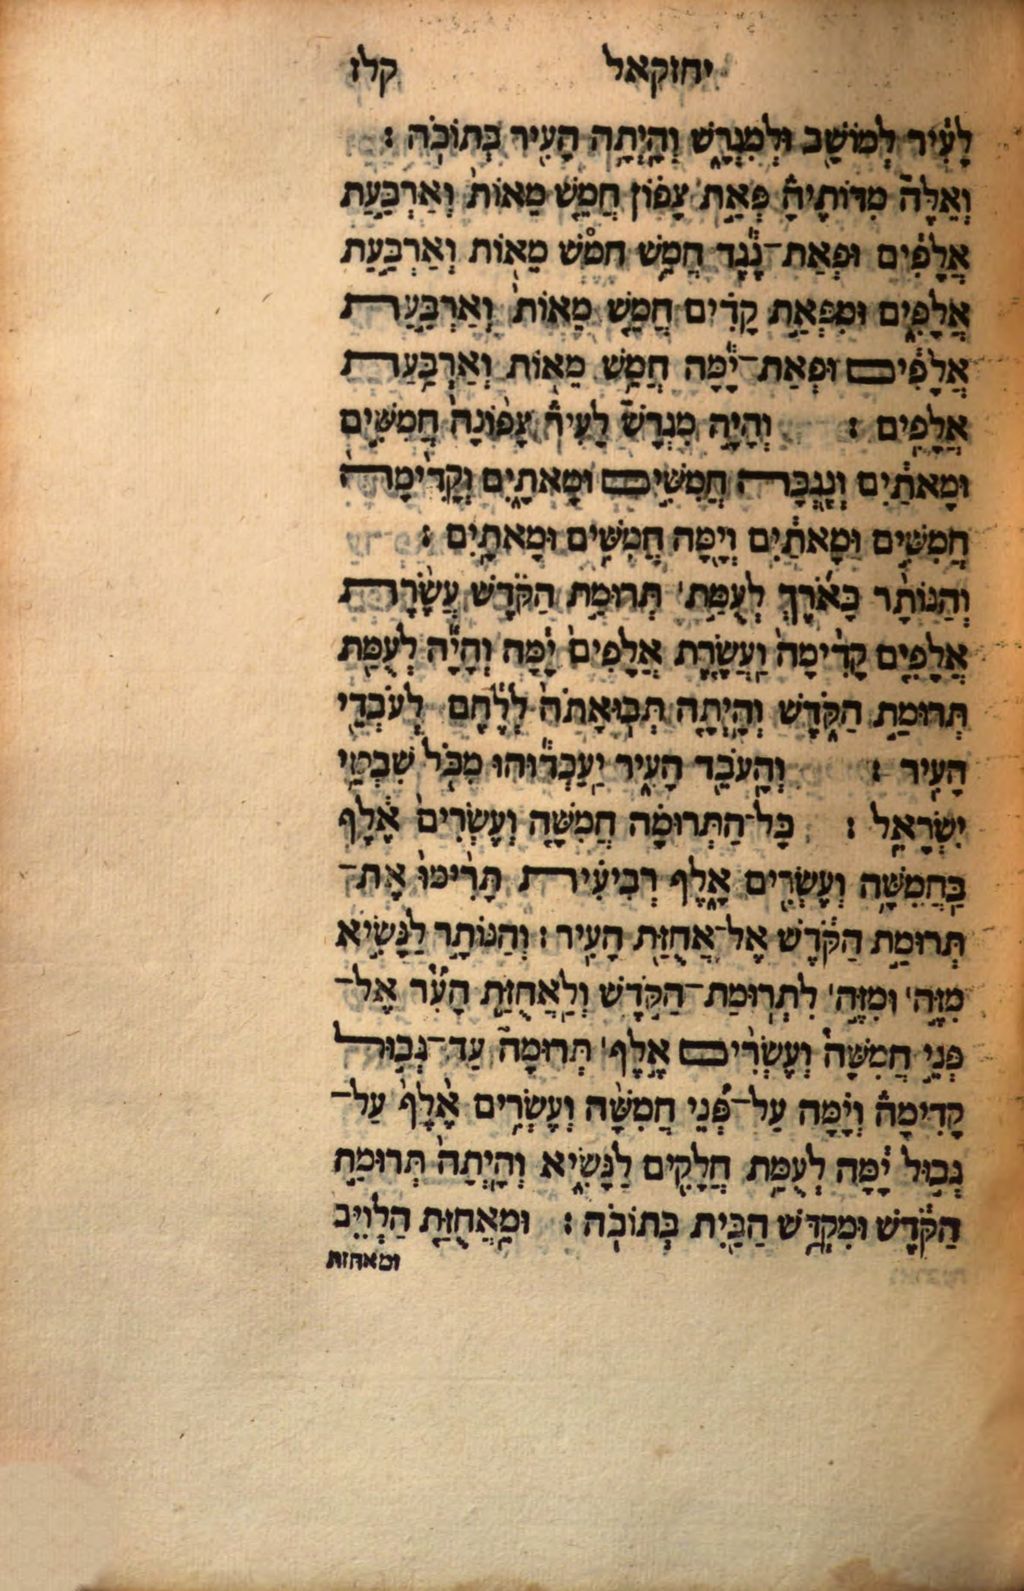 יחזקאל קלז
לָעִ֔יר לְמוֹשָׁ֖ב וּלְמִגְרָ֑שׁ וְהָיְתָ֥ה הָעִ֖יר בְּתוֹכֹֽה׃
וְאֵלֶּה֮ מִדּוֹתֶיהָ֒ פְּאַ֣ת צָפ֗וֹן חֲמֵ֤שׁ מֵאוֹת֙ וְאַרְבַּ֣עַת
אֲלָפִ֔ים וּפְאַת־נֶ֕גֶב חֲמֵ֥שׁ חמש מֵא֖וֹת וְאַרְבַּ֣עַת
אֲלָפִ֑ים וּמִפְּאַ֣ת קָדִ֗ים חֲמֵ֤שׁ מֵאוֹת֙ וְאַרְבַּ֣עַת
אֲלָפִ֔ים וּפְאַת־יָ֕מָּה חֲמֵ֥שׁ מֵא֖וֹת וְאַרְבַּ֥עַת
אֲלָפִֽים׃ וְהָיָ֣ה מִגְרָשׁ֮ לָעִיר֒ צָפ֙וֹנָה֙ חֲמִשִּׁ֣ים
וּמָאתַ֔יִם וְנֶ֖גְבָּה חֲמִשִּׁ֣ים וּמָאתָ֑יִם וְקָדִ֙ימָה֙
חֲמִשִּׁ֣ים וּמָאתַ֔יִם וְיָ֖מָּה חֲמִשִּׁ֥ים וּמָאתָֽיִם׃
וְהַנּוֹתָ֨ר בָּאֹ֜רֶךְ לְעֻמַּ֣ת תְּרוּמַ֣ת הַקֹּ֗דֶשׁ עֲשֶׂ֨רֶת
אֲלָפִ֤ים קָדִ֙ימָה֙ וַעֲשֶׂ֤רֶת אֲלָפִים֙ יָ֔מָּה וְהָיָ֕ה לְעֻמַּ֖ת
תְּרוּמַ֣ת הַקֹּ֑דֶשׁ וְהָיְתָ֤ה תְבֽוּאָתֹה֙ לְלֶ֔חֶם לְעֹבְדֵ֖י
הָעִֽיר׃ וְהָעֹבֵ֖ד הָעִ֑יר יַעַבְד֕וּהוּ מִכֹּ֖ל שִׁבְטֵ֥י
יִשְׂרָאֵֽל׃ כָּל־הַתְּרוּמָ֗ה חֲמִשָּׁ֤ה וְעֶשְׂרִים֙ אֶ֔לֶף
בַּחֲמִשָּׁ֥ה וְעֶשְׂרִ֖ים אָ֑לֶף רְבִיעִ֗ית תָּרִ֙ימוּ֙ אֶת־
תְּרוּמַ֣ת הַקֹּ֔דֶשׁ אֶל־אֲחֻזַּ֖ת הָעִֽיר׃ וְהַנּוֹתָ֣ר לַנָּשִׂ֣יא
מִזֶּ֣ה׀ וּמִזֶּ֣ה׀ לִתְרֽוּמַת־הַקֹּ֣דֶשׁ וְלַאֲחֻזַּ֪ת הָעִ֟ר אֶל־
פְּנֵ֣י חֲמִשָּׁה֩ וְעֶשְׂרִ֨ים אֶ֥לֶף׀ תְּרוּמָה֮ עַד־גְּב֣וּל
קָדִימָה֒ וְיָ֗מָּה עַל־פְּ֠נֵי חֲמִשָּׁ֨ה וְעֶשְׂרִ֥ים אֶ֙לֶף֙ עַל־
גְּב֣וּל יָ֔מָּה לְעֻמַּ֥ת חֲלָקִ֖ים לַנָּשִׂ֑יא וְהָיְתָה֙ תְּרוּמַ֣ת
הַקֹּ֔דֶשׁ וּמִקְדַּ֥שׁ הַבַּ֖יִת בְּתוֹכֹֽה׃ וּמֵאֲחֻזַּ֤ת הַלְוִיִּם
ומאחזת